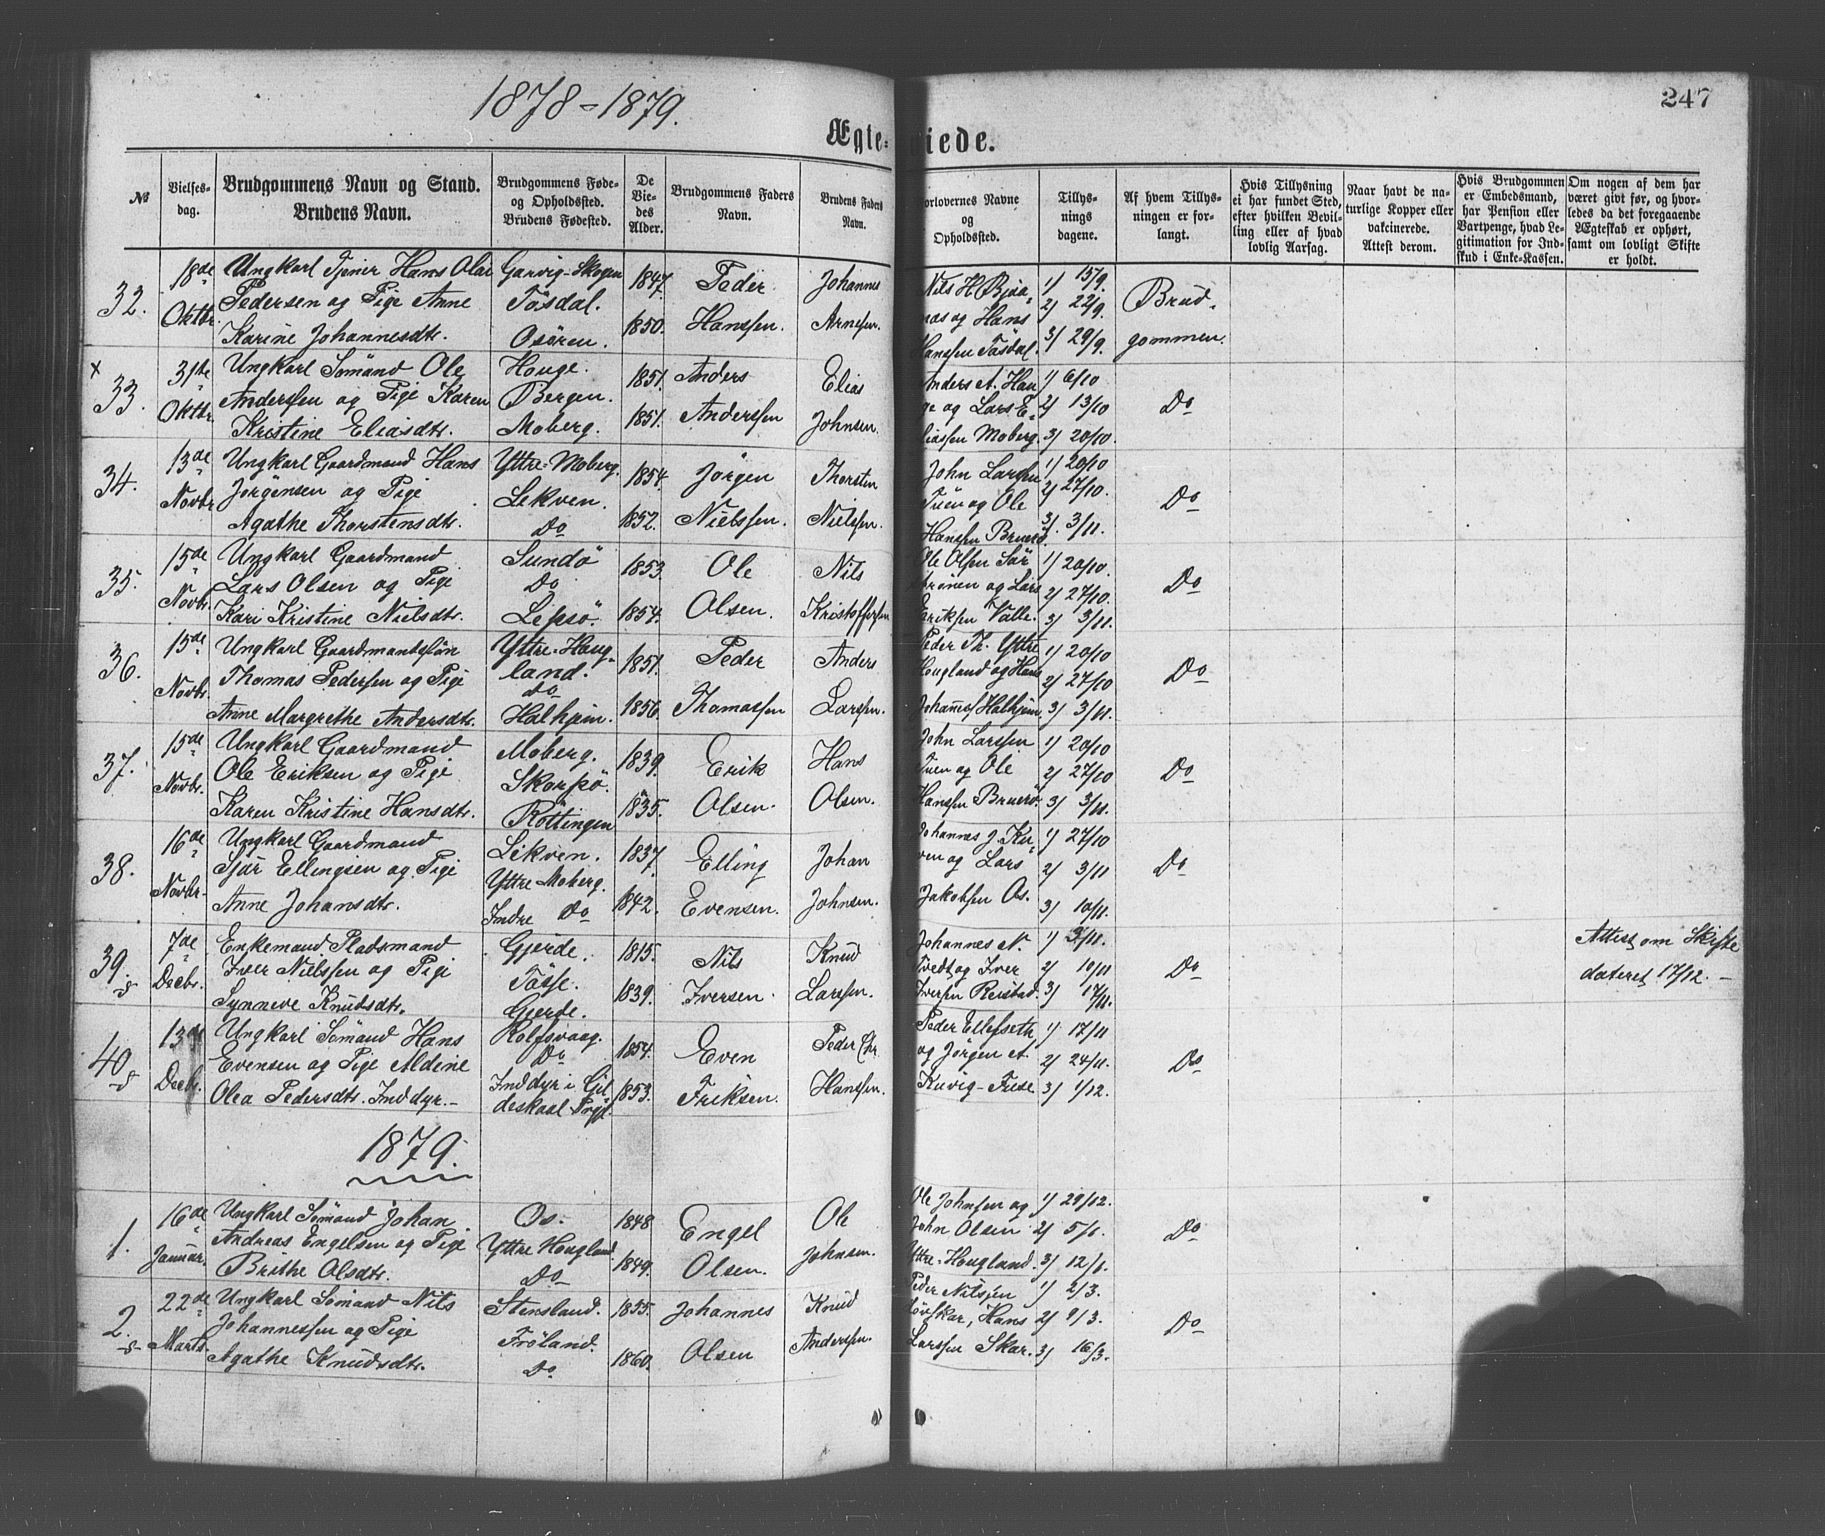 1878-1879.
247
Ægte-viede.
№
Vielses-dag.
Brudgommens Navn og Stand. Brudens Navn.
Brudgommens Føde- og Opholdssted. Brudens Fødested.
De Viedes Alder.
Brudgommens Faders Navn.
Brudens Faders Navn.
Forlovernes Navne og Opholdssted.
Tillysningsdagene.
Af hvem Tillysningen er forlangt.
Hvis Tillysning ei har fundet Sted, efter hvilken Bevilling eller af hvad lovlig Aarsag.
Naar havt de naturlige Kopper eller vakcinerede. Attest derom.
Hvis Brudgommen er Embedsmand, har Pension eller Vartpenge, hvad Legitimation for Indskud i Enke-Kassen.
Om nogen af dem har været givt før, og hvorledes da det foregaaende Ægteskab er ophørt, samt om lovligt Skifte er holdt.
32. 18de Oktbr.
Ungkarl Tjener Hans Olai
Pedersen og Pige Anne
Karine Johannesdtr.
Garvig-Skogen
Tøsdal.
Osøren.
1847.
1850.
Peder
Hanssen.
Johannes
Arnesen.
Nils H. Bjøa-
næs og Hans
Hanssen Tøsdal.
1) 15/9.
2) 22/9.
3) 29/9.
Brud-
gommen.
x 33. 31te Oktbr.
Ungkarl Sømand Ole
Anderssen og Pige Karen
Kristine Eliasdtr.
Houge.
Bergen.
Moberg.
1851.
1851.
Anders
Anderssen
Elias
Johnsen.
Anders A. Hau
ge og Lars E-
liassen Moberg.
1) 6/10
2) 13/10
3) 20/10.
Do
34. 13de Novbr
Ungkarl Gaardmand Hans
Jørgensen og Pige
Agathe Thorstensdtr.
Yttre-Moberg.
Lekven.
Do
1854.
1852.
Jørgen
Nielssen.
Thorsten
Nielssen.
John Larssen
Tuen og Ole
Hanssen Bruerø.
1) 20/10
2) 27/10.
3) 3/11.
Do
35. 15de Novbr.
Ungkarl Gaardmand
Lars Olsen og Pige
Kari Kristine Nielsdtr.
Sundø
Do
Lepsø.
1853.
1854.
Ole
Olsen.
Nils
Kristoffersen
Ole Olsen Sør
strønen og Lars
Eriksen Valle.
1) 20/10.
2) 27/10.
3) 3/11.
Do
36. 15de Novbr.
Ungkarl Gaardmandssøn
Thomas Pederssen og Pige
Anne Margrethe Andersdtr.
Yttre-Houg-
land.
Do
Halhjem.
1851.
1856.
Peder
Thomassen
Anders
Larssen.
Peder Th. Yttre
Hougland og Hans
Johannes Halhjem.
1) 20/10
2) 27/10
3) 3/11.
Do
37. 15de Novbr.
Ungkarl Gaardmand
Ole Eriksen og Pige
Karen Kristine Hansdtr.
Moberg.
Skorpø.
Røttingen
1839.
1835.
Erik
Olsen.
Hans
Olsen.
John Larssen
Tuen og Ole
Hanssen Bruerø.
1) 20/10
2) 27/10
3) 3/11.
Do
38. 16de Novbr.
Ungkarl Gaardmand
Sjur Ellingsen og Pige
Anne Johansdtr.
Lekven.
Yttre Moberg.
Indre Do
1837.
1842.
Elling
Evensen.
Johan
Johnsen.
Johannes J. Ku-
ven og Lars
Jakobsen Os.
1) 27/10
2) 3/11
3) 10/11.
Do
39. 7de Decbr.
Enkemand Pladsmand
Iver Nielssen og Pige
Synneve Knudsdtr.
Gjerde.
Tøsse.
Gjerde.
1815.
1839.
Nils
Iversen.
Knud
Larssen.
Johannes N.
Tvedt og Iver
Iversen Reistad.
1) 3/11.
2) 10/11
3) 17/11.
Do
Attest om Skifte
dateret 17/12. -
40. 13de Decbr.
Ungkarl Sømand Hans
Evensen og Pige Aldine
Olea Pedersdtr. Inddyr.-
Rolfsvaag.
Do
Inddyr i Gil
deskaal Prgj.
1854.
1853.
Even
Eriksen.
Peder Chr.
Hanssen.
Peder Ellefseth
og Jørgen A.
Kuvig-Fuse
1) 17/11
2) 24/11.
3) 1/12.
Do
1879.
1. 16de Januar.
Ungkarl Sømand Johan
Andreas Engelsen og Pige
Brithe Olsdtr.
Os.
Yttre Hougland
Do
1848
1849.
Engel
Olsen.
Ole
Johnsen.
Ole Johnsen og
John Olsen
Yttre-Hougland.
1) 29/12.
2) 5/1.
3) 12/1.
Do
2. 22de Marts.
Ungkarl Sømand Nils
Johannessen og Pige
Agathe Knudsdtr.
Stensland.
Frøland.
Do
1855.
1860.
Johannes
Olsen
Knud
Anderssen.
Peder Nilssen
Høvskar, Hans
Larssen Skar.
1) 2/3.
2) 9/3.
3) 16/3.
Do